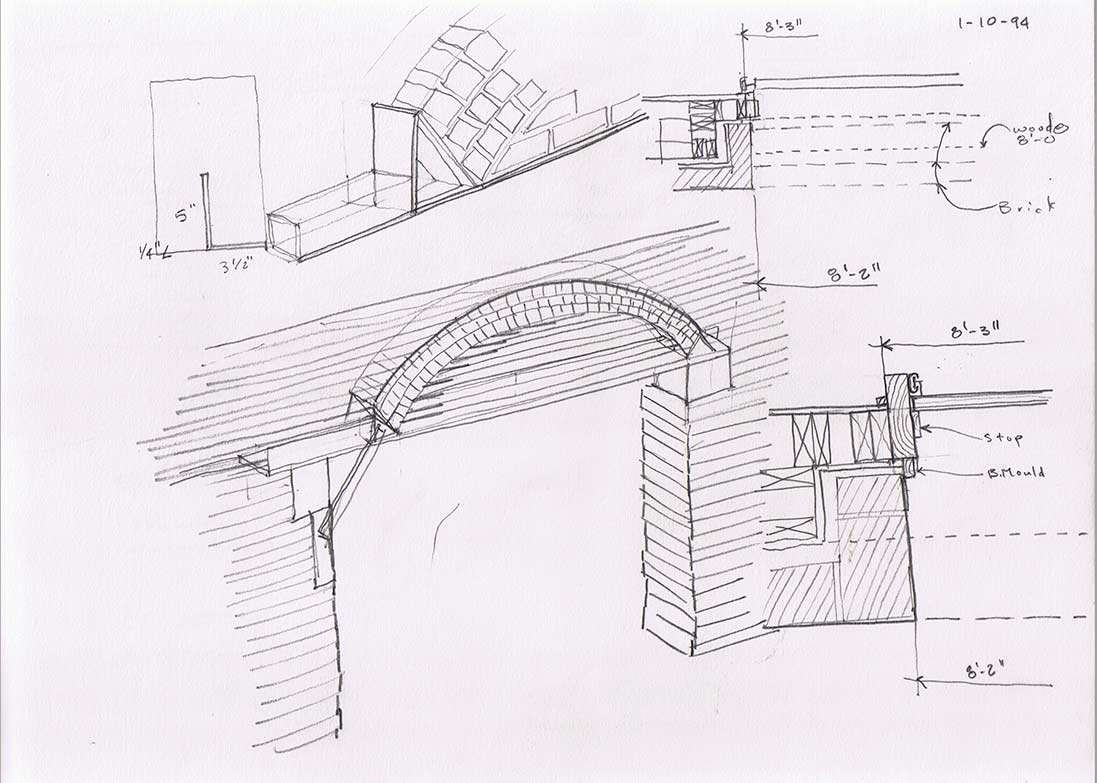 8'-3"
1-10-94
wood@
8'-0
Brick
5"
1/4"
3 1/2"
8'-2"
8'-3"
Stop
B.Mould
8'-2"